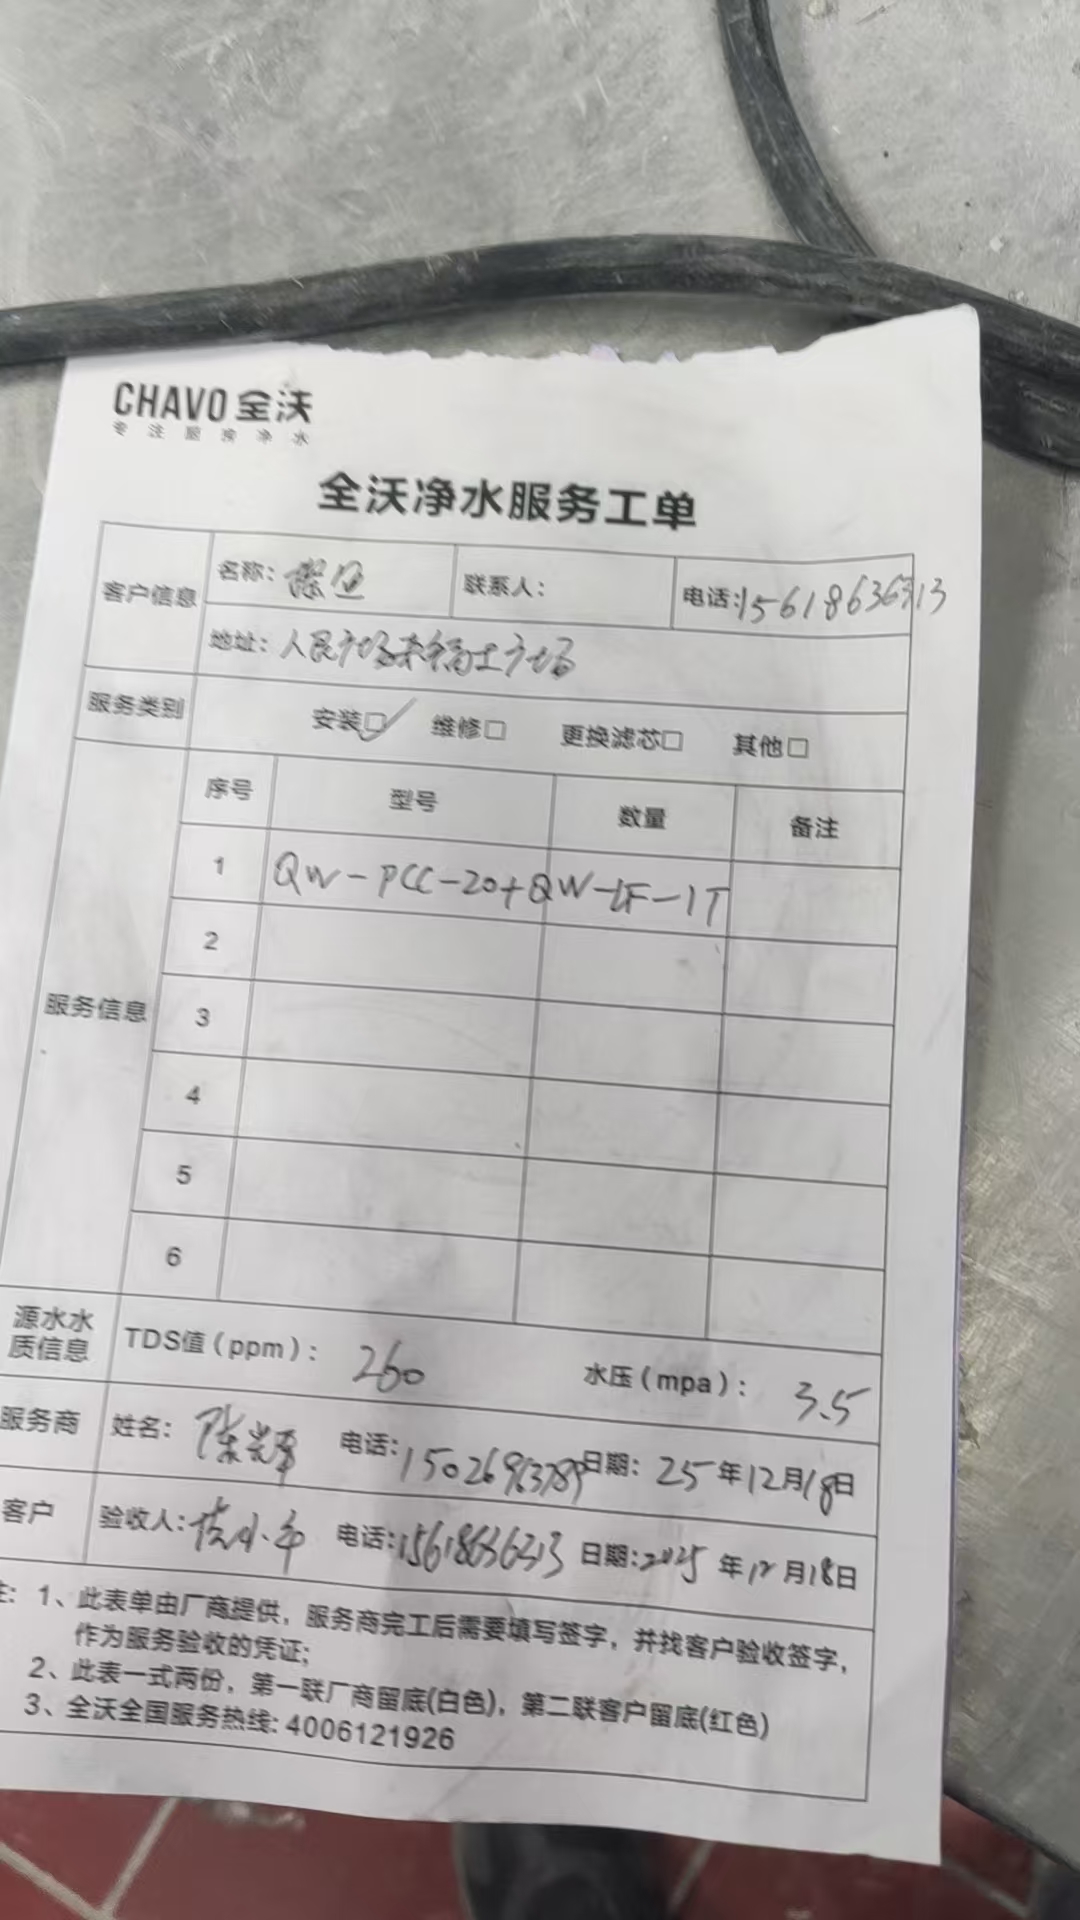 CHAVO 全沃
专注厨房净水
全沃净水服务工单
客户信息 名称: 探鱼 联系人: 电话: 15618636313
地址: 人民广场来福士广场
服务类别 安装☑ 维修□ 更换滤芯□ 其他□
服务信息 序号 型号 数量 备注
1 QW-PCC-20+QW-LF-1T
2
3
4
5
6
源水水质信息 TDS值(ppm): 260 水压(mpa): 3.5
服务商 姓名: 陈光军 电话: 15026963789 日期: 25年12月18日
客户 验收人: 电话: 15618636313 日期: 2025年12月18日
注: 1、此表单由厂商提供，服务商完工后需要填写签字，并找客户验收签字，
作为服务验收的凭证;
2、此表一式两份，第一联厂商留底(白色)，第二联客户留底(红色)
3、全沃全国服务热线: 4006121926